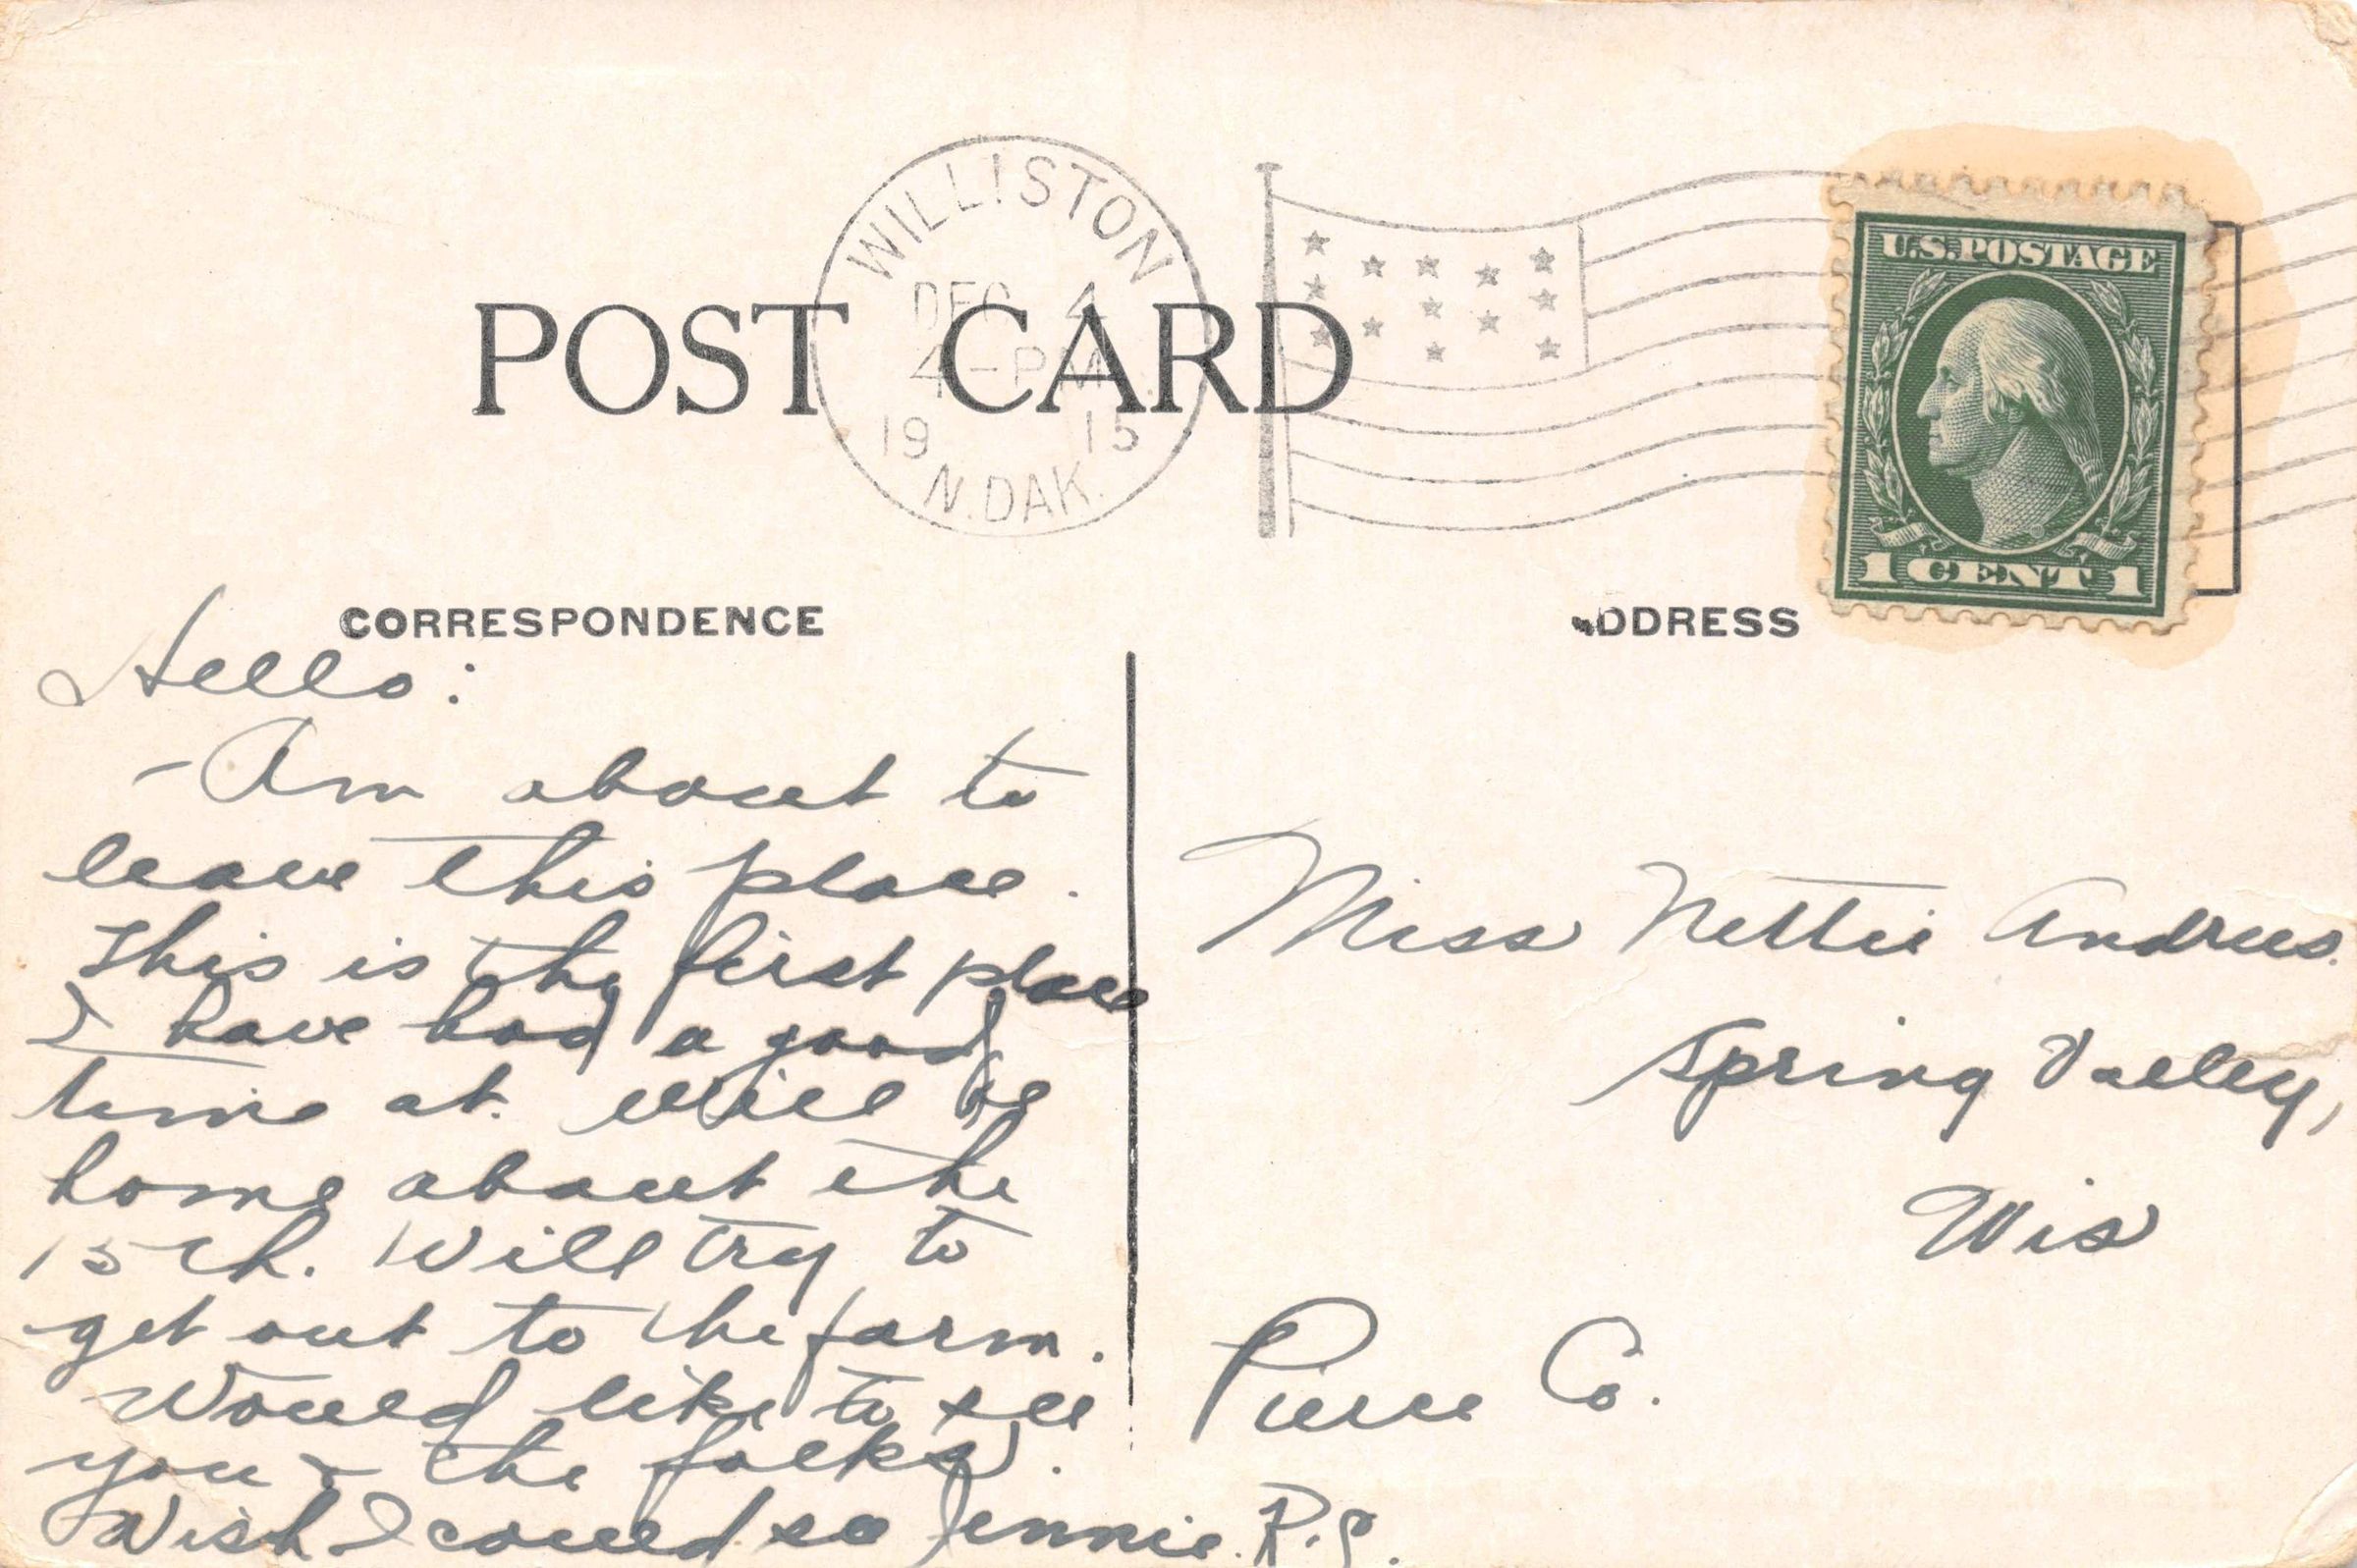 WILLISTON
DEC 4
4-PM
19 15
N.DAK.
U.S.POSTAGE
1 CENT 1
POST CARD
CORRESPONDENCE
DDRESS
Hello:
-Am about to
leave this place.
This is the first place
I have had a good
time at. Will be
home about the
15th. Will try to
get out to the farm.
Would like to see
you & the folks.
Wish I could see Jennie. R.S.
Miss Nettie Andrees.
Spring Valley,
Wis
Pierce Co.